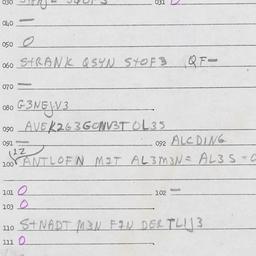 040 —
050 O
060 STRANK QSYN SYOF3 QF—
070 —
080 G3NEJV3
090 AVEK2G3GONV3T OL3S
091 — 092 ALCDING
100 ANTLOFN M2T AL3M3N= AL3S -
101 O 102 —
103 O
110 S+NADT M3N F2N DERTLIJ3
111 O